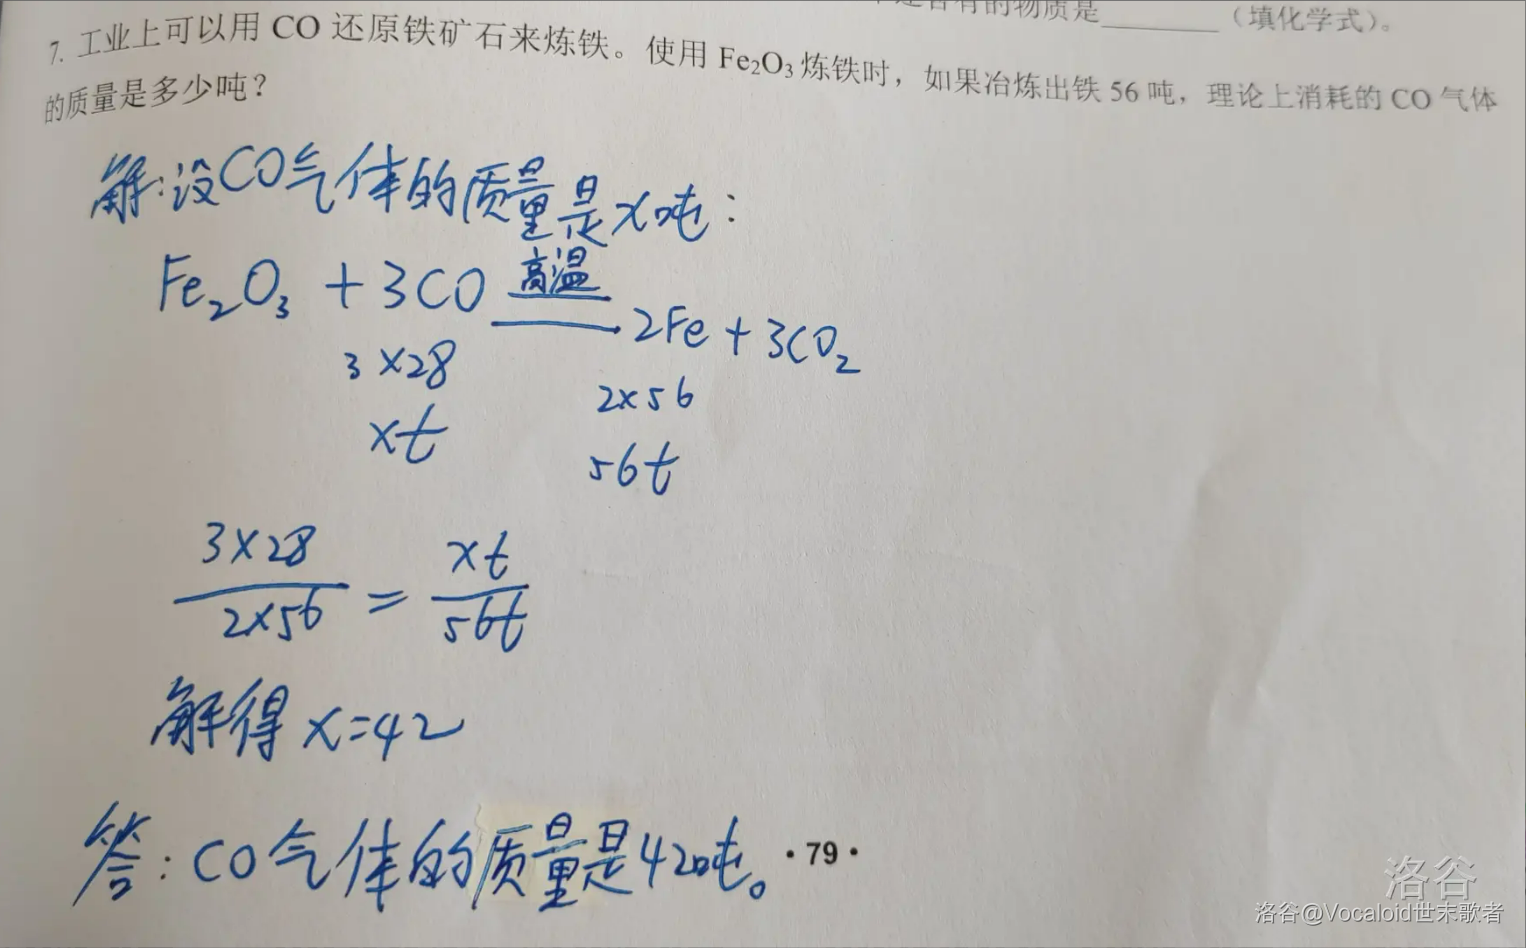 的物质是______（填化学式）。
7. 工业上可以用 CO 还原铁矿石来炼铁。使用 Fe₂O₃ 炼铁时，如果冶炼出铁 56 吨，理论上消耗的 CO 气体
的质量是多少吨？
解:设CO气体的质量是x吨:
Fe₂O₃ + 3CO 高温 2Fe + 3CO₂
3×28 2×56
xt 56t
3×28 / 2×56 = xt / 56t
解得 x=42
答: CO气体的质量是42吨。
·79·
洛谷
洛谷@Vocaloid世末歌者